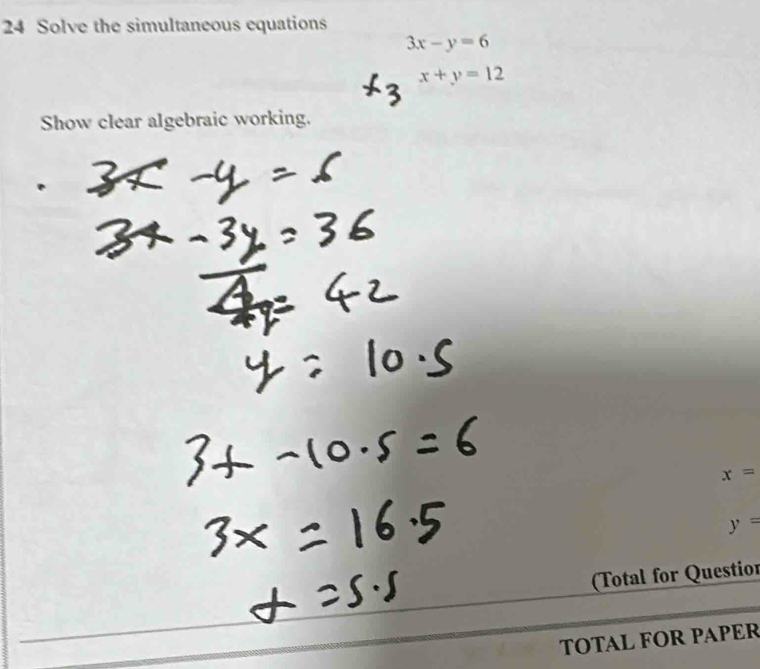 24 Solve the simultaneous equations
3x – y = 6
×3 x + y = 12
Show clear algebraic working.
. 3x - y = 6
3x - 3y = 36
4y = 42
y = 10.5
3x - 10.5 = 6
x =
3x = 16.5
y =
x = 5.5
(Total for Question
TOTAL FOR PAPER